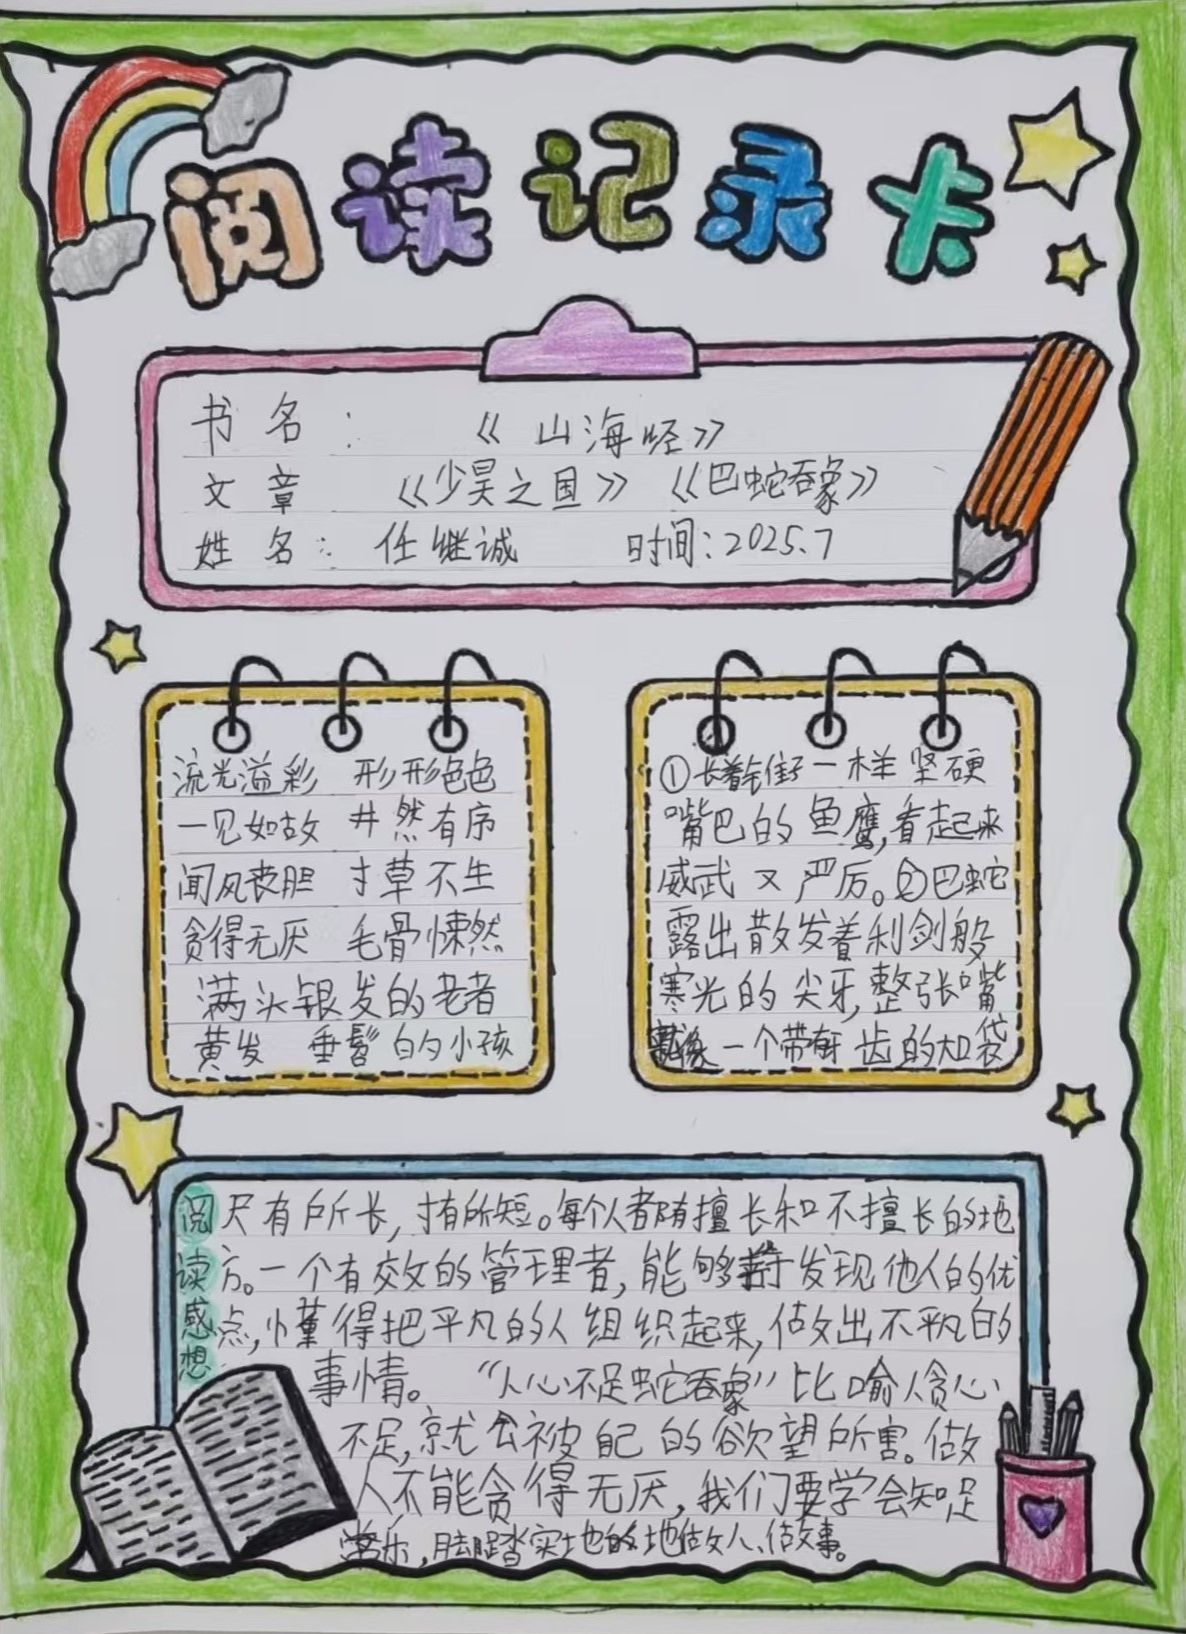 阅读记录卡
书名：《山海经》
文章《少昊之国》《巴蛇吞象》
姓名：任继诚 时间：2025.7
流光溢彩 形形色色
一见如故 井然有序
闻风丧胆 寸草不生
贪得无厌 毛骨悚然
满头银发的老者
黄发 垂髫的小孩
①长着 一样坚硬
嘴巴的鱼鹰,看起来
威武又严厉。②巴蛇
露出散发着利剑般
寒光的尖牙,整张嘴
就像一个带有 齿的大口袋
阅读感想
尺有所长,寸有所短。每个人都有擅长和不擅长的地
方。一个有效的管理者,能够善于发现他人的优
点,懂得把平凡的人组织起来,做出不平凡的
事情。“人心不足蛇吞象”比喻人贪心
不足,就会被自己的欲望所害。做
人不能贪得无厌,我们要学会知足
常乐,脚踏实地的地做人、做事。